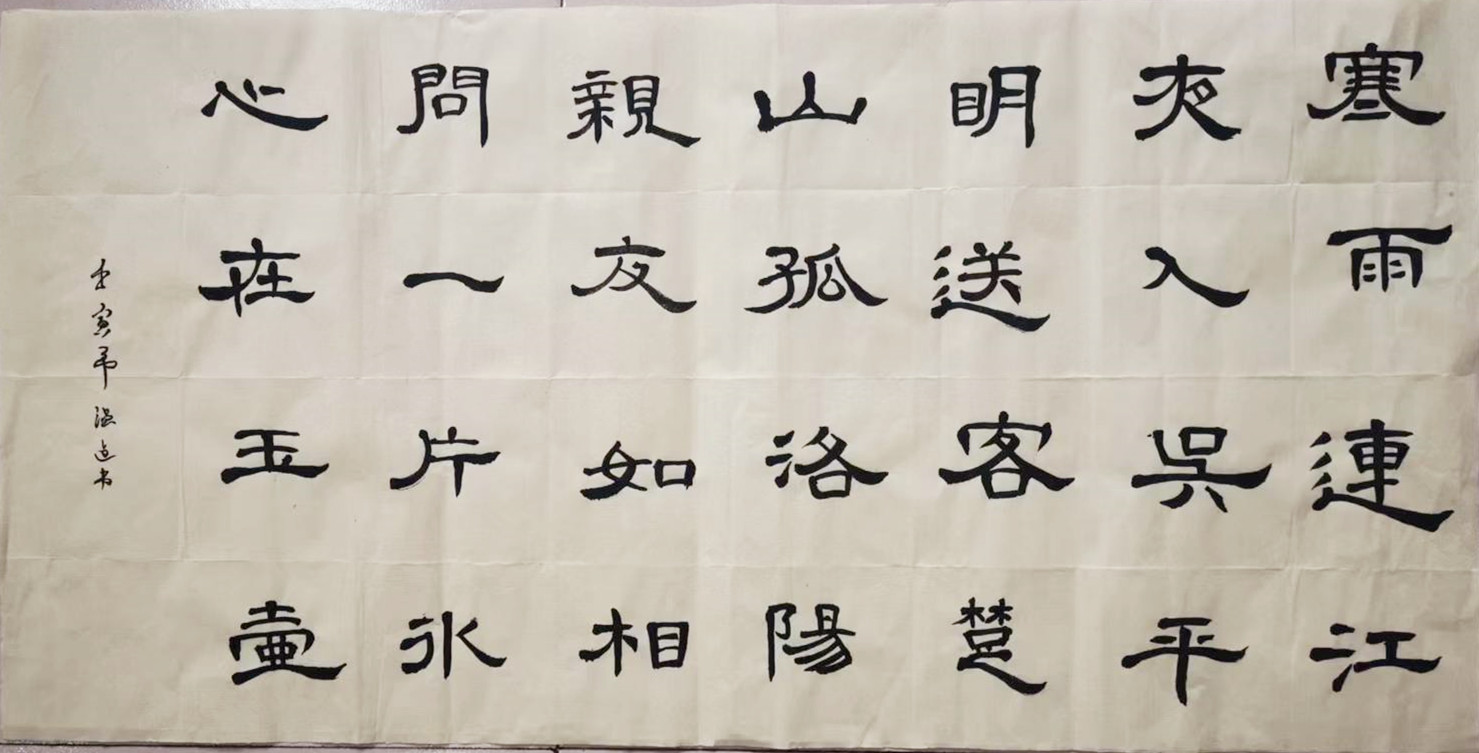 寒雨連江
夜入吳平
明送客楚
山孤洛陽
親友如相
問一片冰
心在玉壺
壬寅年 温 书